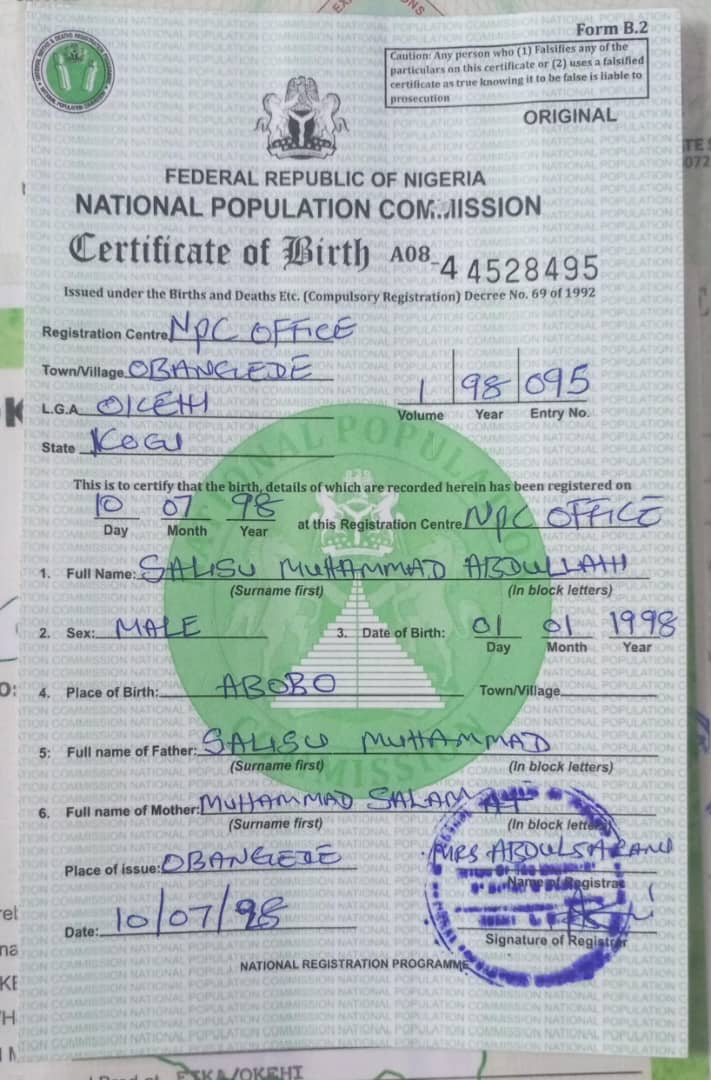 Form B.2
Caution: Any person who (1) Falsifies any of the
particulars on this certificate or (2) uses a falsified
certificate as true knowing it to be false is liable to
prosecution
ORIGINAL
FEDERAL REPUBLIC OF NIGERIA
NATIONAL POPULATION COMMISSION
Certificate of Birth A08-4 4528495
Issued under the Births and Deaths Etc. (Compulsory Registration) Decree No. 69 of 1992
Registration Centre NPC OFFICE
Town/Village OBANGEDE
1 98 095
L.G.A OKEHI
Volume Year Entry No.
State KOGI
This is to certify that the birth, details of which are recorded herein has been registered on
10 07 98 at this Registration Centre NPC OFFICE
Day Month Year
1. Full Name: SALISU MUHAMMAD ABDULLAHI
(Surname first) (In block letters)
2. Sex: MALE 3. Date of Birth: 01 01 1998
Day Month Year
4. Place of Birth: ABOBO Town/Village
5: Full name of Father: SALISU MUHAMMAD
(Surname first) (In block letters)
6. Full name of Mother: MUHAMMAD SALAMAT
(Surname first) (In block letters)
MRS ABDULSALAMI
Place of issue: OBANGEDE
Name of Registrar
Date: 10/07/98
Signature of Registrar
NATIONAL REGISTRATION PROGRAMME